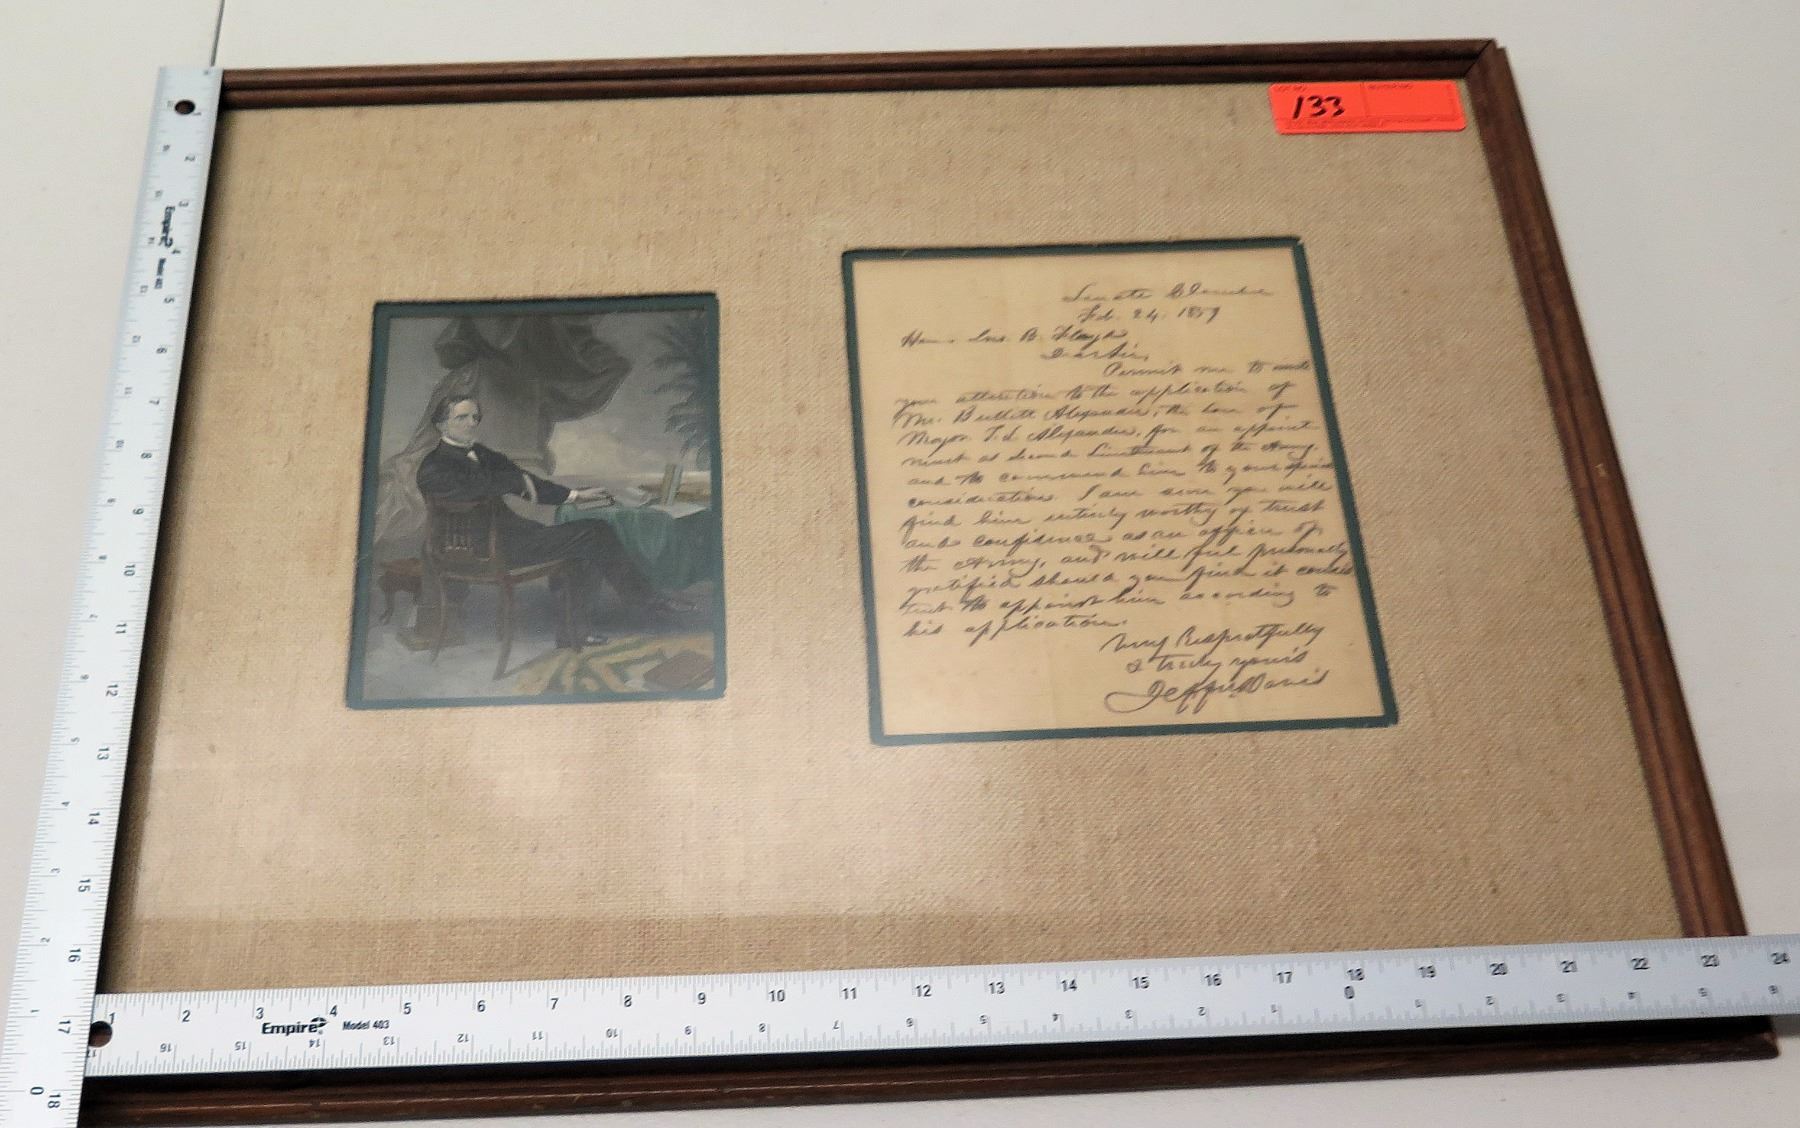 133
Senate Chamber
Feb. 24. 1859
Hon. Jno. B. Floyd
Dear Sir,
Permit me to invite
your attention to the application of
Mr. Bullitt Alexander, the son of
Major T. L. Alexander, for an appoint
ment as Second Lieutenant of the Army.
and to commend him to your
consideration. I am sure you will
find him entirely worthy of trust
and confidence as an officer of
the Army, and will feel personally
gratified should you find it consis
tent to appoint him according to
his application.
Very Respectfully
& truly yours
Jeffn Davis
Empire
Model 403
1 2 3 4 5 6 7 8 9 10 11 12 13 14 15 16 17 18 19 20 21 22 23 24
16 15 14 13 12 11 10 9 8 7 6 5 4 3 2 1 0 1 2 3 4 5 6
Empire
Model 403
2 3 4 5 6 7 8 9 10 11 12 13 14 15 16 17 18